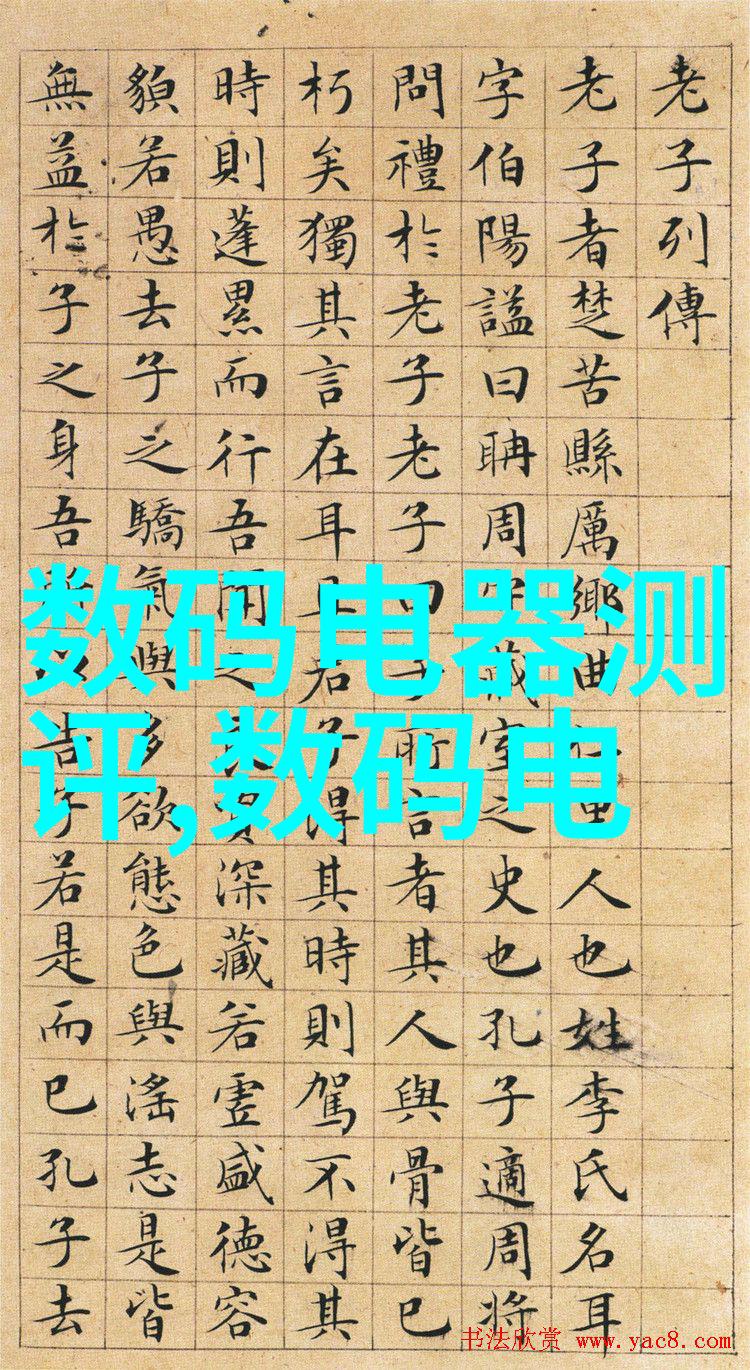 老子列傳
老子者楚苦縣厲鄉曲里人也姓李氏名耳
字伯陽謚曰聃周守藏室之史也孔子適周將
問禮於老子老子曰子所言者其人與骨皆已
朽矣獨其言在耳且君子得其時則駕不得其
時則蓬累而行吾聞之賈深藏若虛盛德容
貌若愚去子之驕氣與多欲態色與淫志是皆
無益於子之身吾所以告子若是而已孔子去
数码电器测
评,数码电
书法欣赏 www.yac8.com